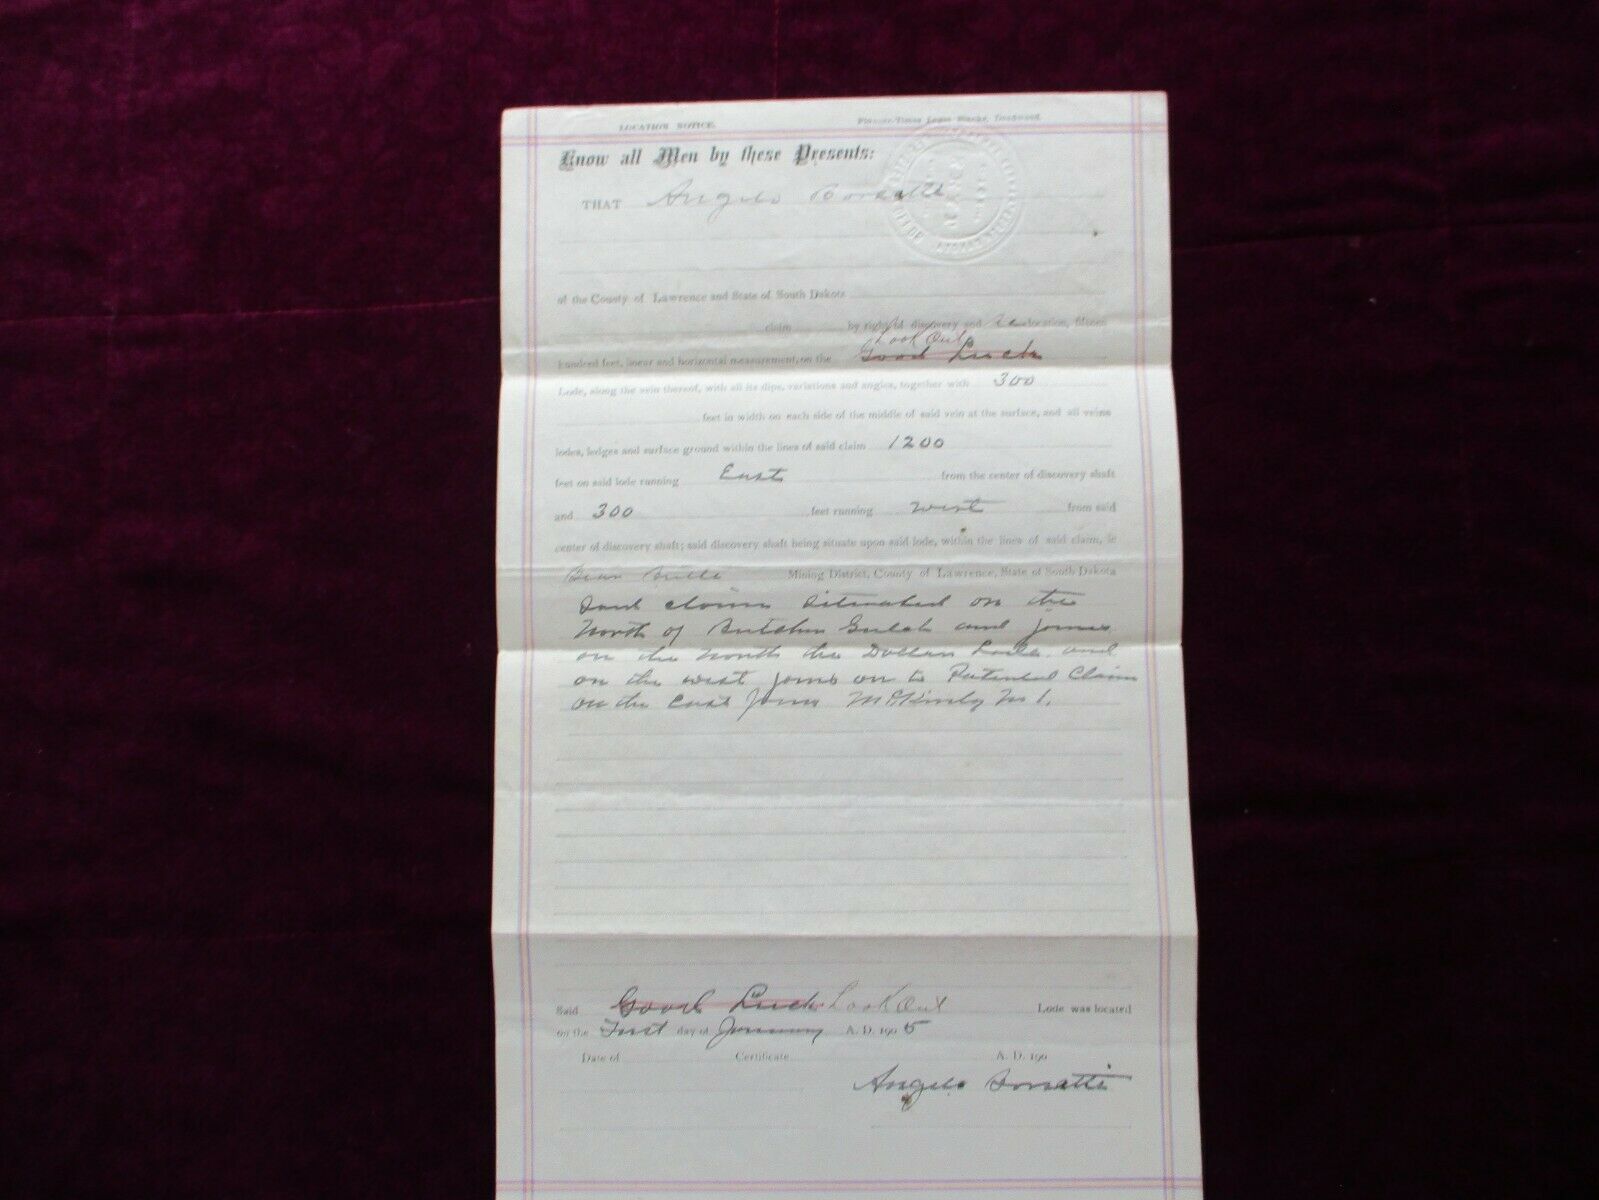 LOCATION NOTICE. Pioneer-Times Legal Blanks, Deadwood.
Know all Men by these Presents:
THAT Angelo
of the County of Lawrence and State of South Dakota
claim by right of discovery and re location, fifteen
Look Out
hundred feet, linear and horizontal measurement, on the Good Luck
Lode, along the vein thereof, with all its dips, variations and angles, together with 300
feet in width on each side of the middle of said vein at the surface, and all veins
lodes, ledges and surface ground within the lines of said claim 1200
feet on said lode running East from the center of discovery shaft
and 300 feet running west from said
center of discovery shaft; said discovery shaft being situate upon said lode, within the lines of said claim, in
Bear Butte Mining District, County of Lawrence, State of South Dakota
Said claim situated on the
North of Butcher Gulch and joins
on the North the Lode and
on the west joins on to Patented Claim
on the East joins McKinley No 1.
Said Good Luck Look Out Lode was located
on the First day of January A. D. 1905
Date of Certificate A. D. 190
Angelo